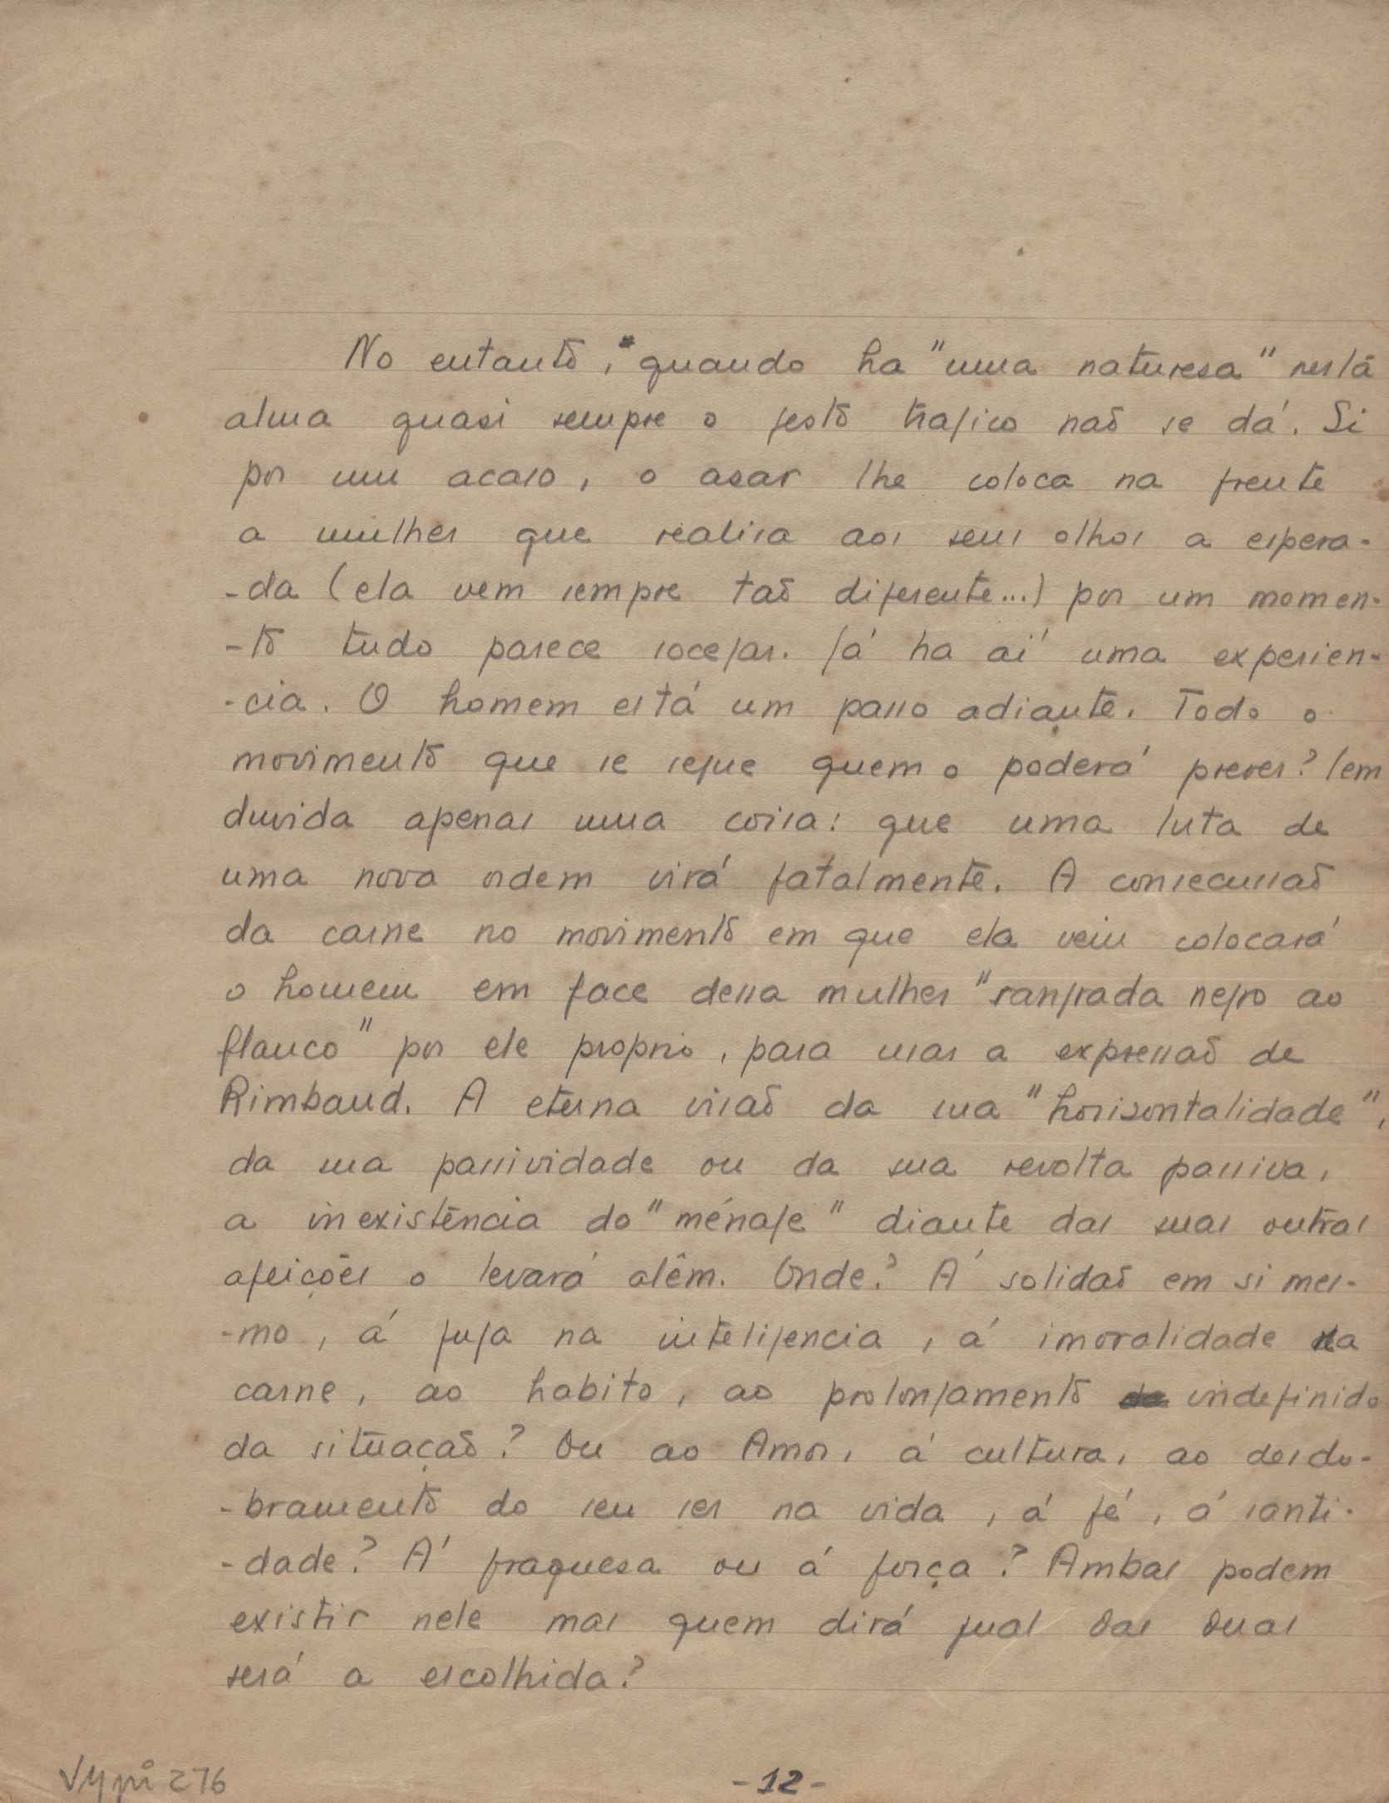 No entanto, quando ha "uma naturesa" nestá
alma quasi sempre o gesto tragico naõ se dá. Si
por um acaso, o asar lhe coloca na frente
a mulher que realisa aos seus olhos a espera-
-da (ela vem sempre taõ diferente...) por um momen-
-to tudo parece socegar. Já ha aí uma experien-
-cia. O homem está um passo adiante. Todo o
movimento que se segue quem o poderá prever? Sem
duvida apenas uma coisa: que uma luta de
uma nova ordem virá fatalmente. A consecussaõ
da carne no movimento em que ela veiu colocará
o homem em face dessa mulher "sangrada negro ao
flanco" por ele proprio, para usar a expressaõ de
Rimbaud. A eterna visaõ da sua "horisontalidade",
da sua passividade ou da sua revolta passiva,
a inexistência do "ménage" diante das suas outras
afeições o levará além. Onde? Á solidaõ em si mes-
-mo, á fuga na inteligencia, á imoralidade na
carne, ao habito, ao prolongamento indefinido
da situaçaõ? Ou ao Amor, á cultura, ao desdo-
-bramento do seu ser na vida, á fé, á santi-
-dade? Á fraquesa ou á força? Ambas podem
existir nele mas quem dirá qual das duas
será a escolhida?
-12-
276